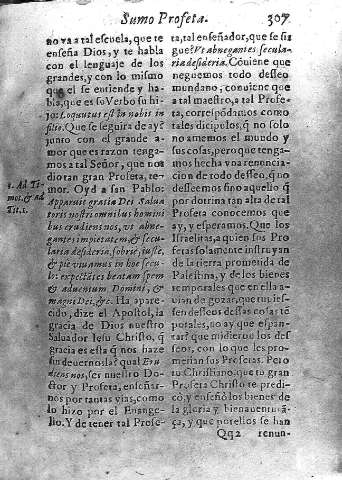 Sumo Profeta. 307
no va a tal escuela, que te
enseña Dios, y te habla
con el lenguaje de los
grandes, y con lo mismo
que el se entiende y ha-
bla, que es su Verbo su hi-
jo: Loquutus est in nobis in
filio. Que se seguira de ay?
junto con el grande a-
mor que es razon tenga-
mos a tal Señor, que nos
dio tan gran Profeta, te-
mor. Oyd a san Pablo:
1. Ad Ti
mot. & ad
Tit. 2.
Apparuit gratia Dei Salua
toris nostri omnibus homini
bus erudiens nos, vt abne-
gantes impietatem, & secu-
laria desideria, sobrie, iuste,
& pie viuamus in hoc secu-
lo: expectātes beatam spem
& aduentum Domini, &
magni Dei, &c. Ha apare-
cido, dize el Apostol, la
gracia de Dios nuestro
Saluador Iesu Christo, q̄
gracia es esta q̄ nos haze
sin deuernosla? qual Eru-
diens nos, ser nuestro Do-
ctor y Profeta, enseñar-
nos por tantas vias, como
lo hizo por el Euange-
lio. Y de tener tal Profe-
ta, tal enseñador, que se si
gue? Vt abnegantes secula-
ria desideria. Cōuiene que
neguemos todo desseo
mundano, cōuiene que
a tal maestro, a tal Profe-
ta, correspōdamos como
tales dicipulos, q̄ no solo
no amemos el mundo y
sus cosas, pero que tenga-
mos hecha vna renuncia-
cion de todo desseo, q̄ no
desseemos sino aquello q̄
por dotrina tan alta de tal
Profeta conocemos que
ay, y esperamos. Que los
Israelitas, a quien sus Pro
fetas solamente instruyan
de la tierra prometida de
Palestina, y de los bienes
temporales que en ella a-
uian de gozar, que tuuies-
sen desseos dessas cosas tē
porales, no ay que espan-
tar? que midieron los des-
seos, con lo que les pro-
metian sus Profetas. Pero
tu Christiano, que tu gran
Profeta Christo te predi-
có, y enseñò los bienes de
la gloria y bienauenturā-
ça, y que por ellos se han
Qq2 renun-